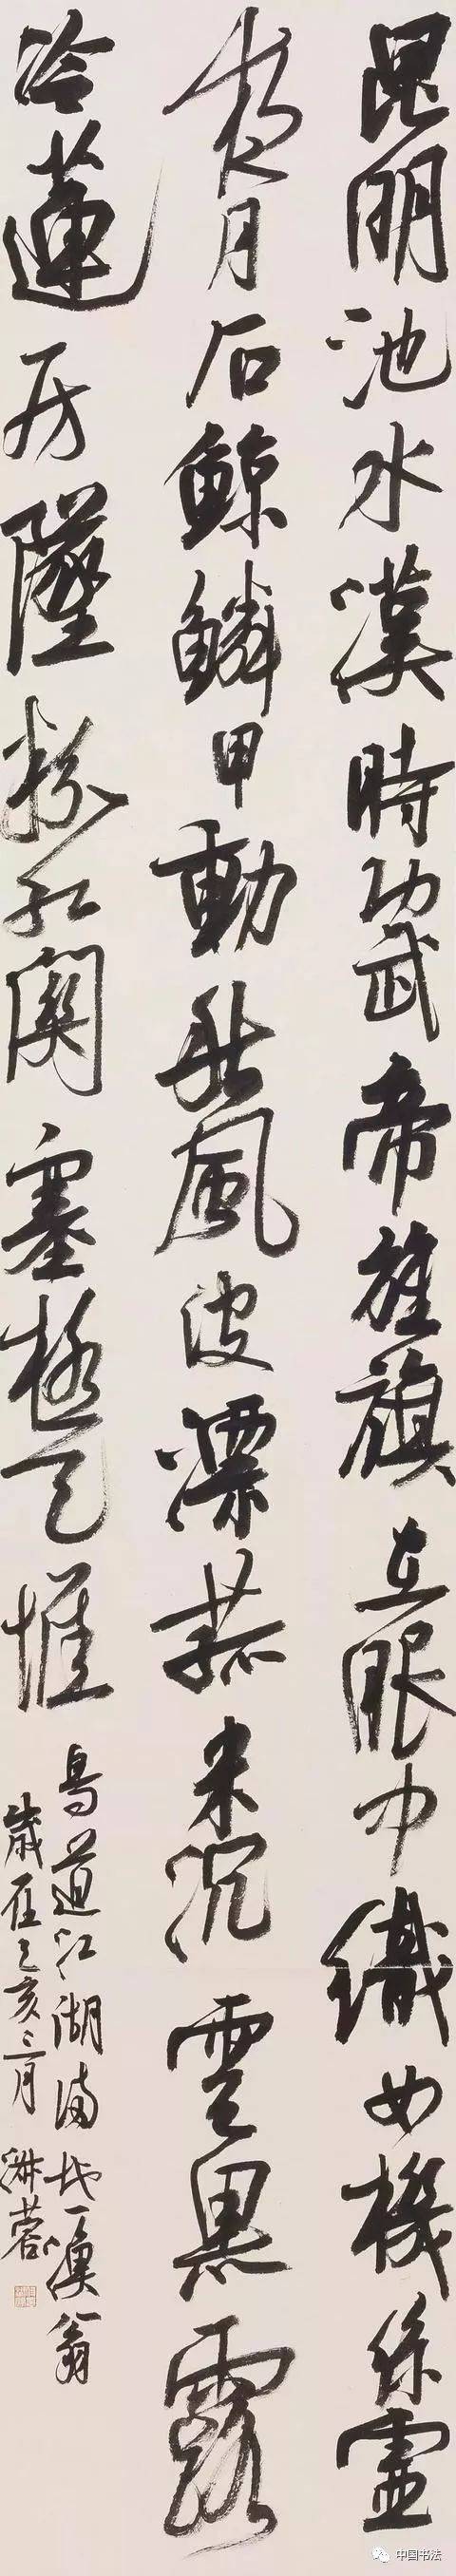 昆明池水漢時功武帝旌旗在眼中織女機絲虛
夜月石鯨鱗甲動秋風波漂菰米沉雲黑露
冷蓮房墜粉紅關塞極天惟
鳥道江湖滿地一漁翁
歲在己亥三月
中国书法